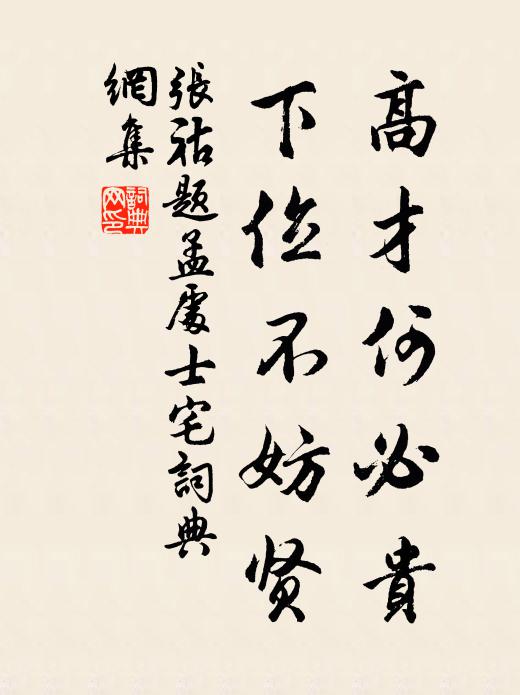 高才何必貴
下位不妨贤
張祜題孟處士宅詞典
網集
詞典網印